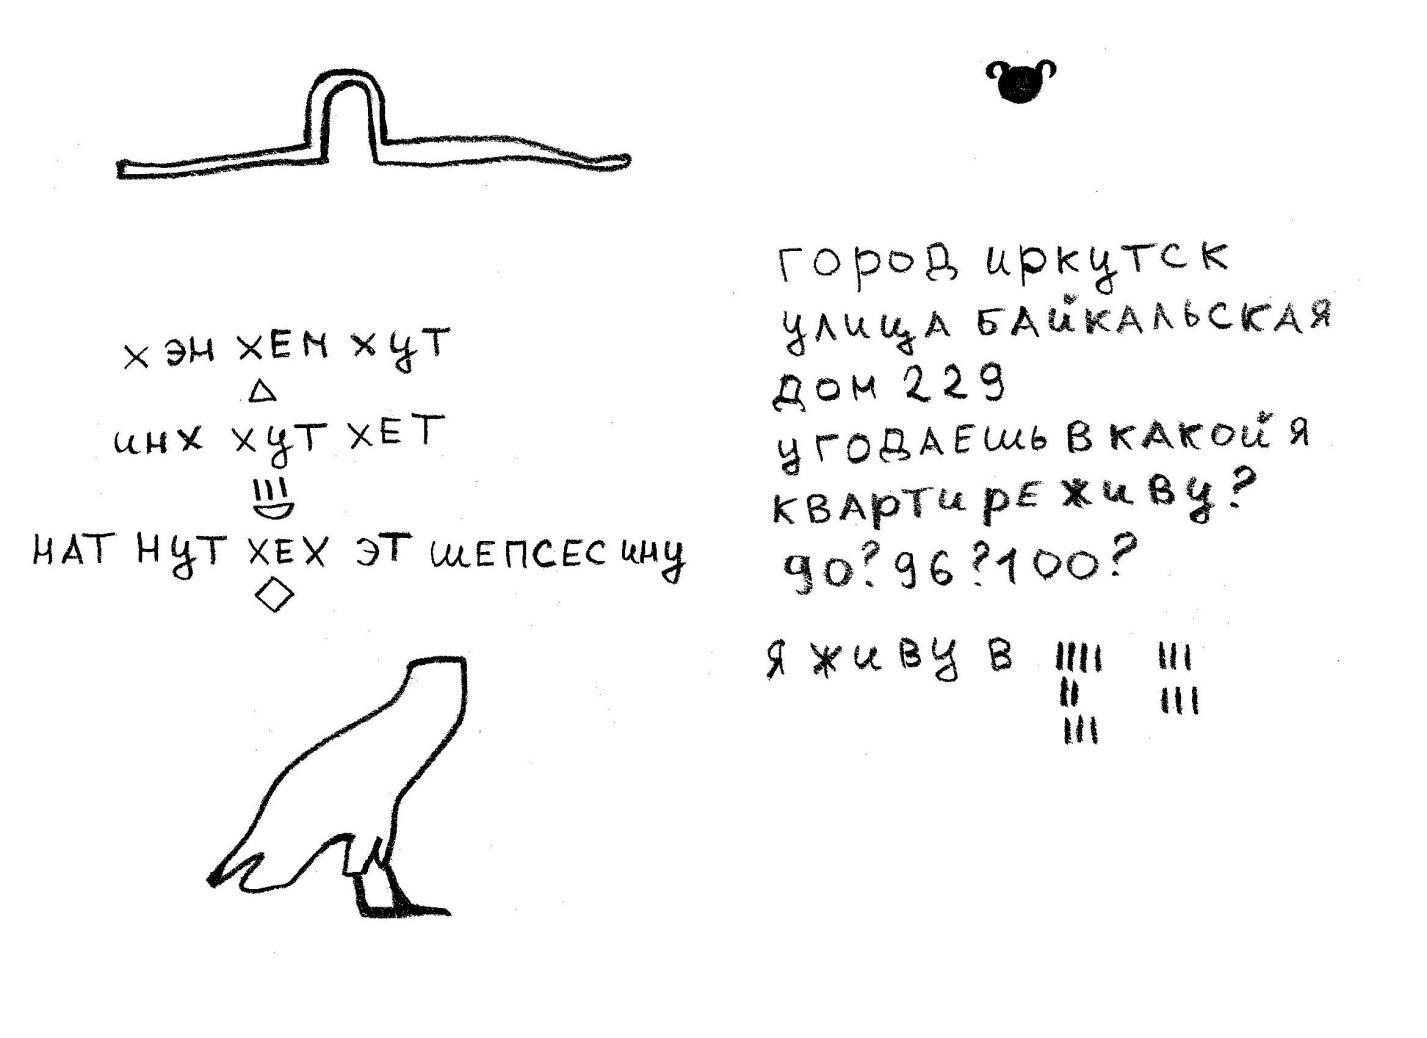 ХЭН ХЕМ ХУТ
ИНХ ХУТ ХЕТ
НАТ НУТ ХЕХ ЭТ ШЕПСЕС ИНУ
ГОРОД ИРКУТСК
УЛИЦА БАЙКАЛЬСКАЯ
ДОМ 229
УГОДАЕШЬ В КАКОЙ Я
КВАРТИРЕ ЖИВУ?
90? 96? 100?
Я ЖИВУ В